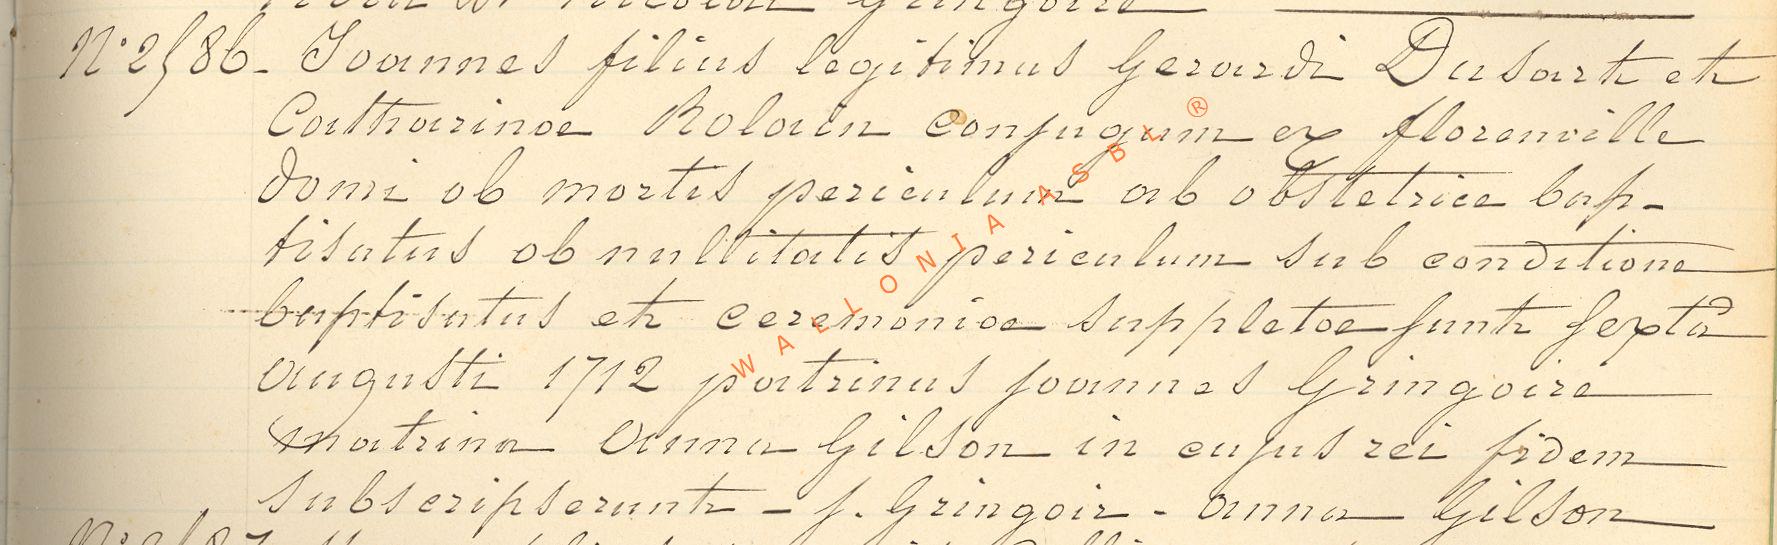 N° 2/86 - Joannes filius legitimus Gerardi Dusart et
Catharinae Rolain conjugum ex florenville
domi ob mortis periculum ab obstetrice bap-
tisatus ob nullitatis periculum sub conditione
baptisatus et ceremoniae suppletae sunt sexta
augusti 1712 patrinus joannes Gringoire
matrina anna Gilson in cujus rei fidem
subscripserunt - j. Gringoir - anna Gilson
WALLONIA ASBL ®